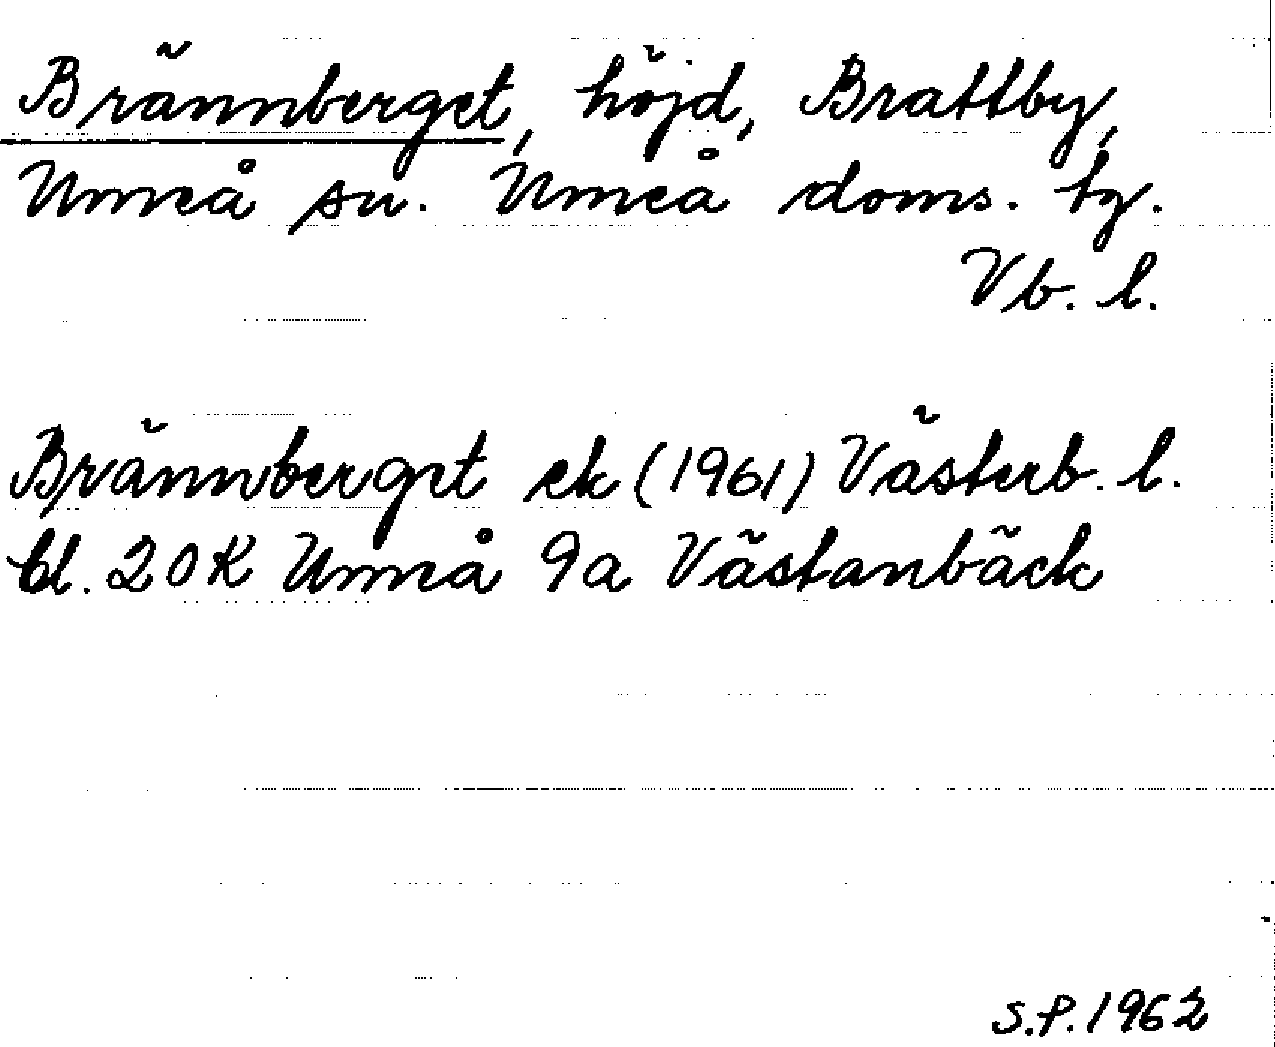 Brännberget, höjd, Brattby,
Umeå sn. Umeå doms. tg.
Vb. l.
Brännberget ek (1961) Västerb. l.
bl. 20K Umeå 9a Västanbäck
S.P. 1962